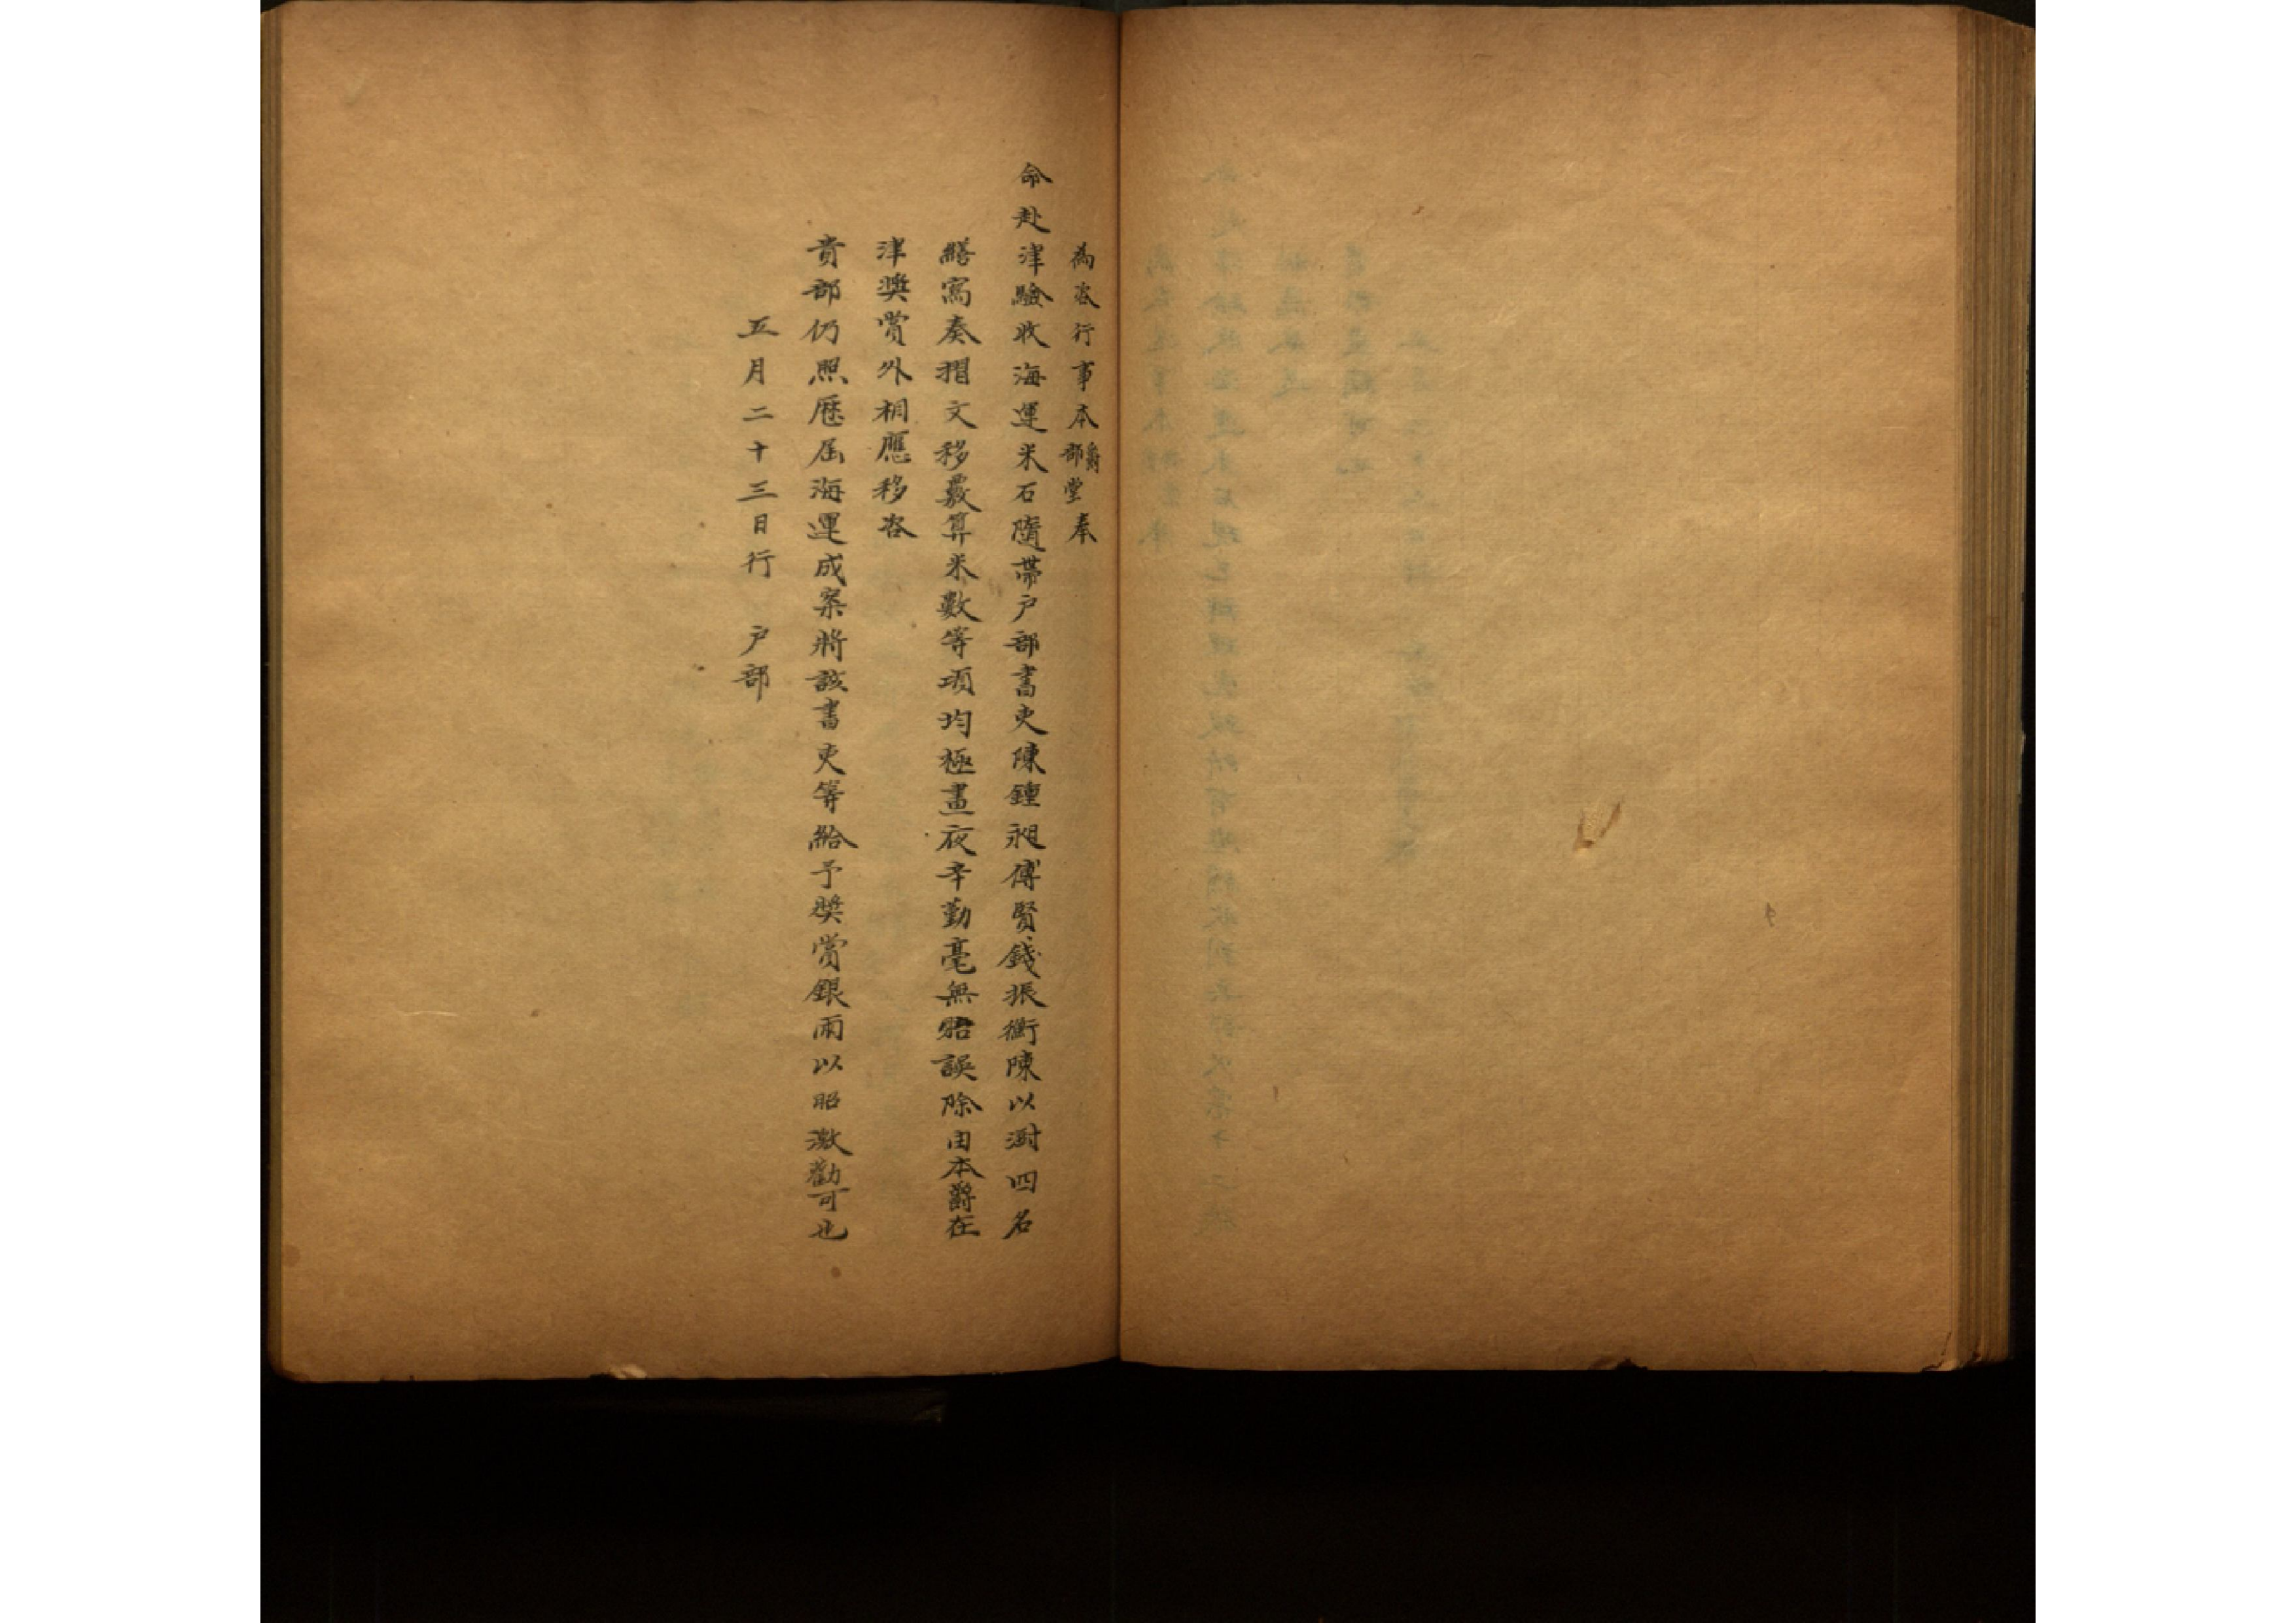 為咨行事本爵部堂奉
命赴津驗收海運米石隨帶户部書吏陳鍾昶傅賢錢振衡陳以澍四名
繕寫奏摺文移覈算米數等項均極晝夜辛勤毫無貽誤除由本爵在
津獎賞外相應移咨
貴部仍照歷屆海運成案將該書吏等給予獎賞銀兩以昭激勸可也
五月二十三日行 户部